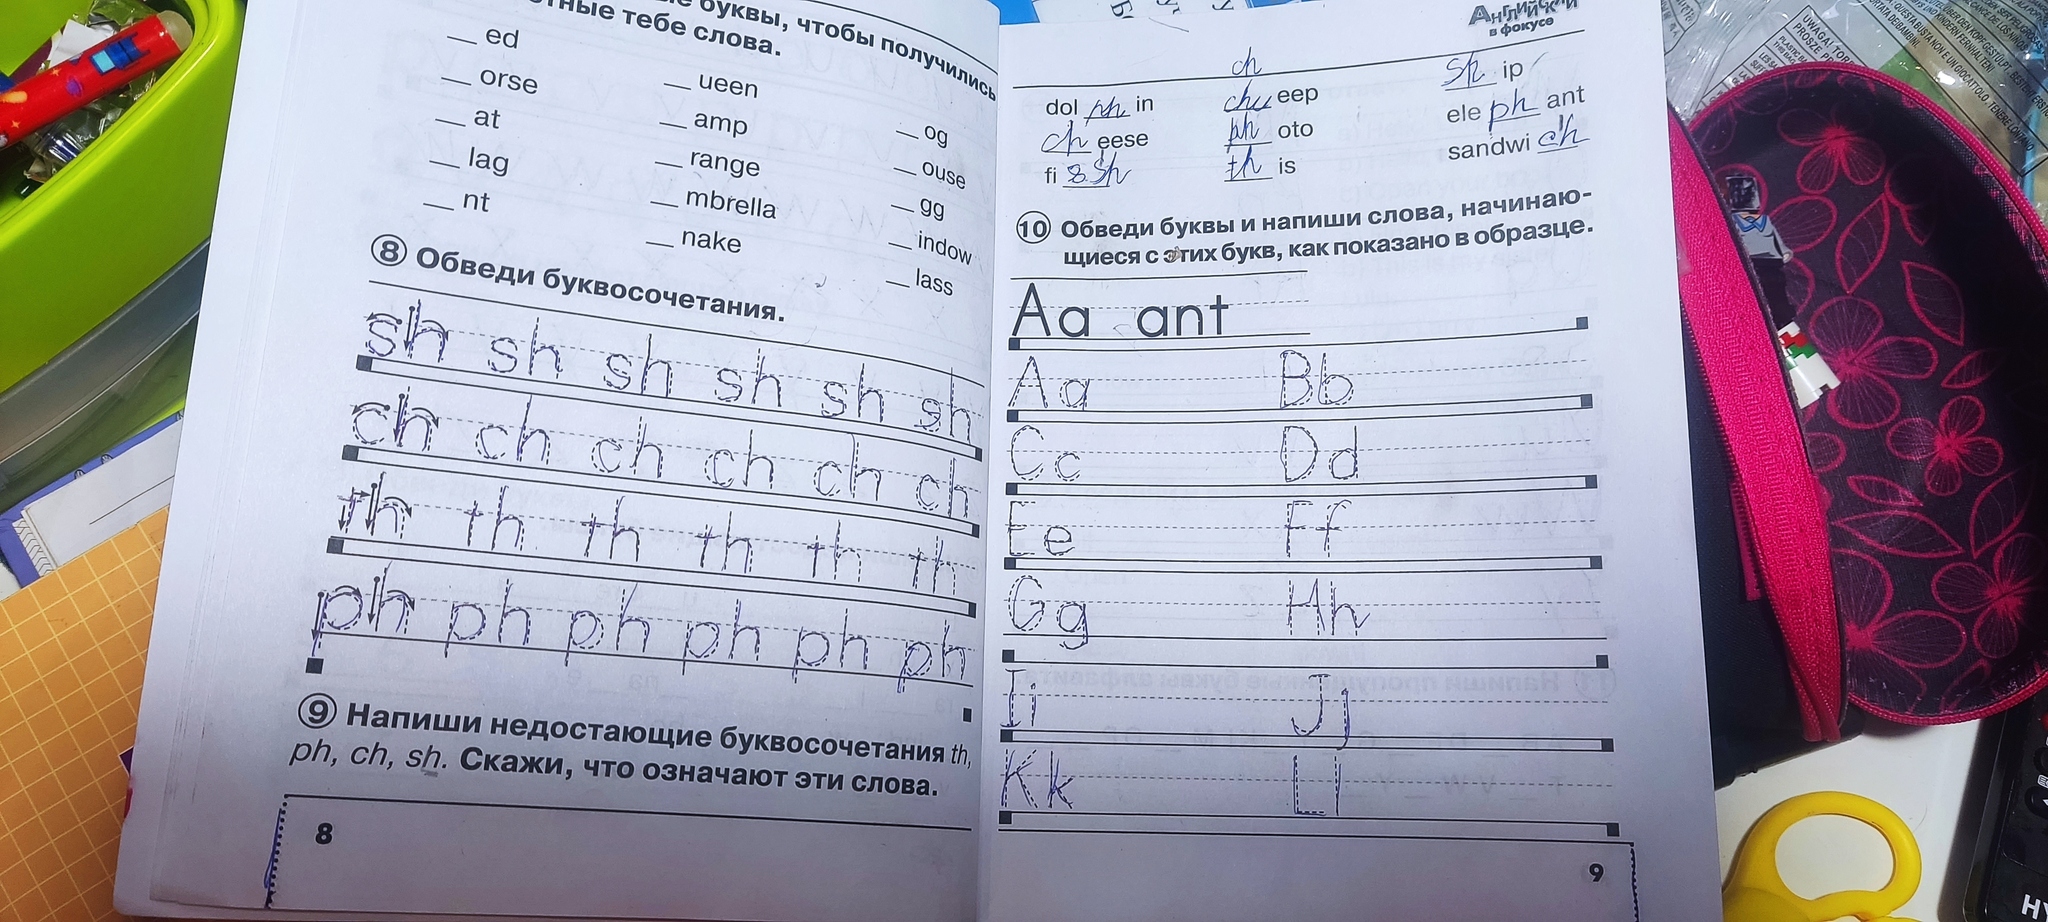 буквы, чтобы получились
тные тебе слова.
__ ed
__ orse
__ at
__ lag
__ nt
__ ueen
__ amp
__ range
__ mbrella
__ nake
__ og
__ ouse
__ gg
__ indow
__ lass
8 Обведи буквосочетания.
sh sh sh sh sh sh
ch ch ch ch ch ch
th th th th th th
ph ph ph ph ph ph
9 Напиши недостающие буквосочетания th,
ph, ch, sh. Скажи, что означают эти слова.
8
Английский
в фокусе
dol ph in
ch eese
fi sh
ch
eep
ph oto
th is
sh ip
ele ph ant
sandwi ch
10 Обведи буквы и напиши слова, начинаю-
щиеся с этих букв, как показано в образце.
Aa ant
Aa Bb
Cc Dd
Ee Ff
Gg Hh
Ii Jj
Kk Ll
9